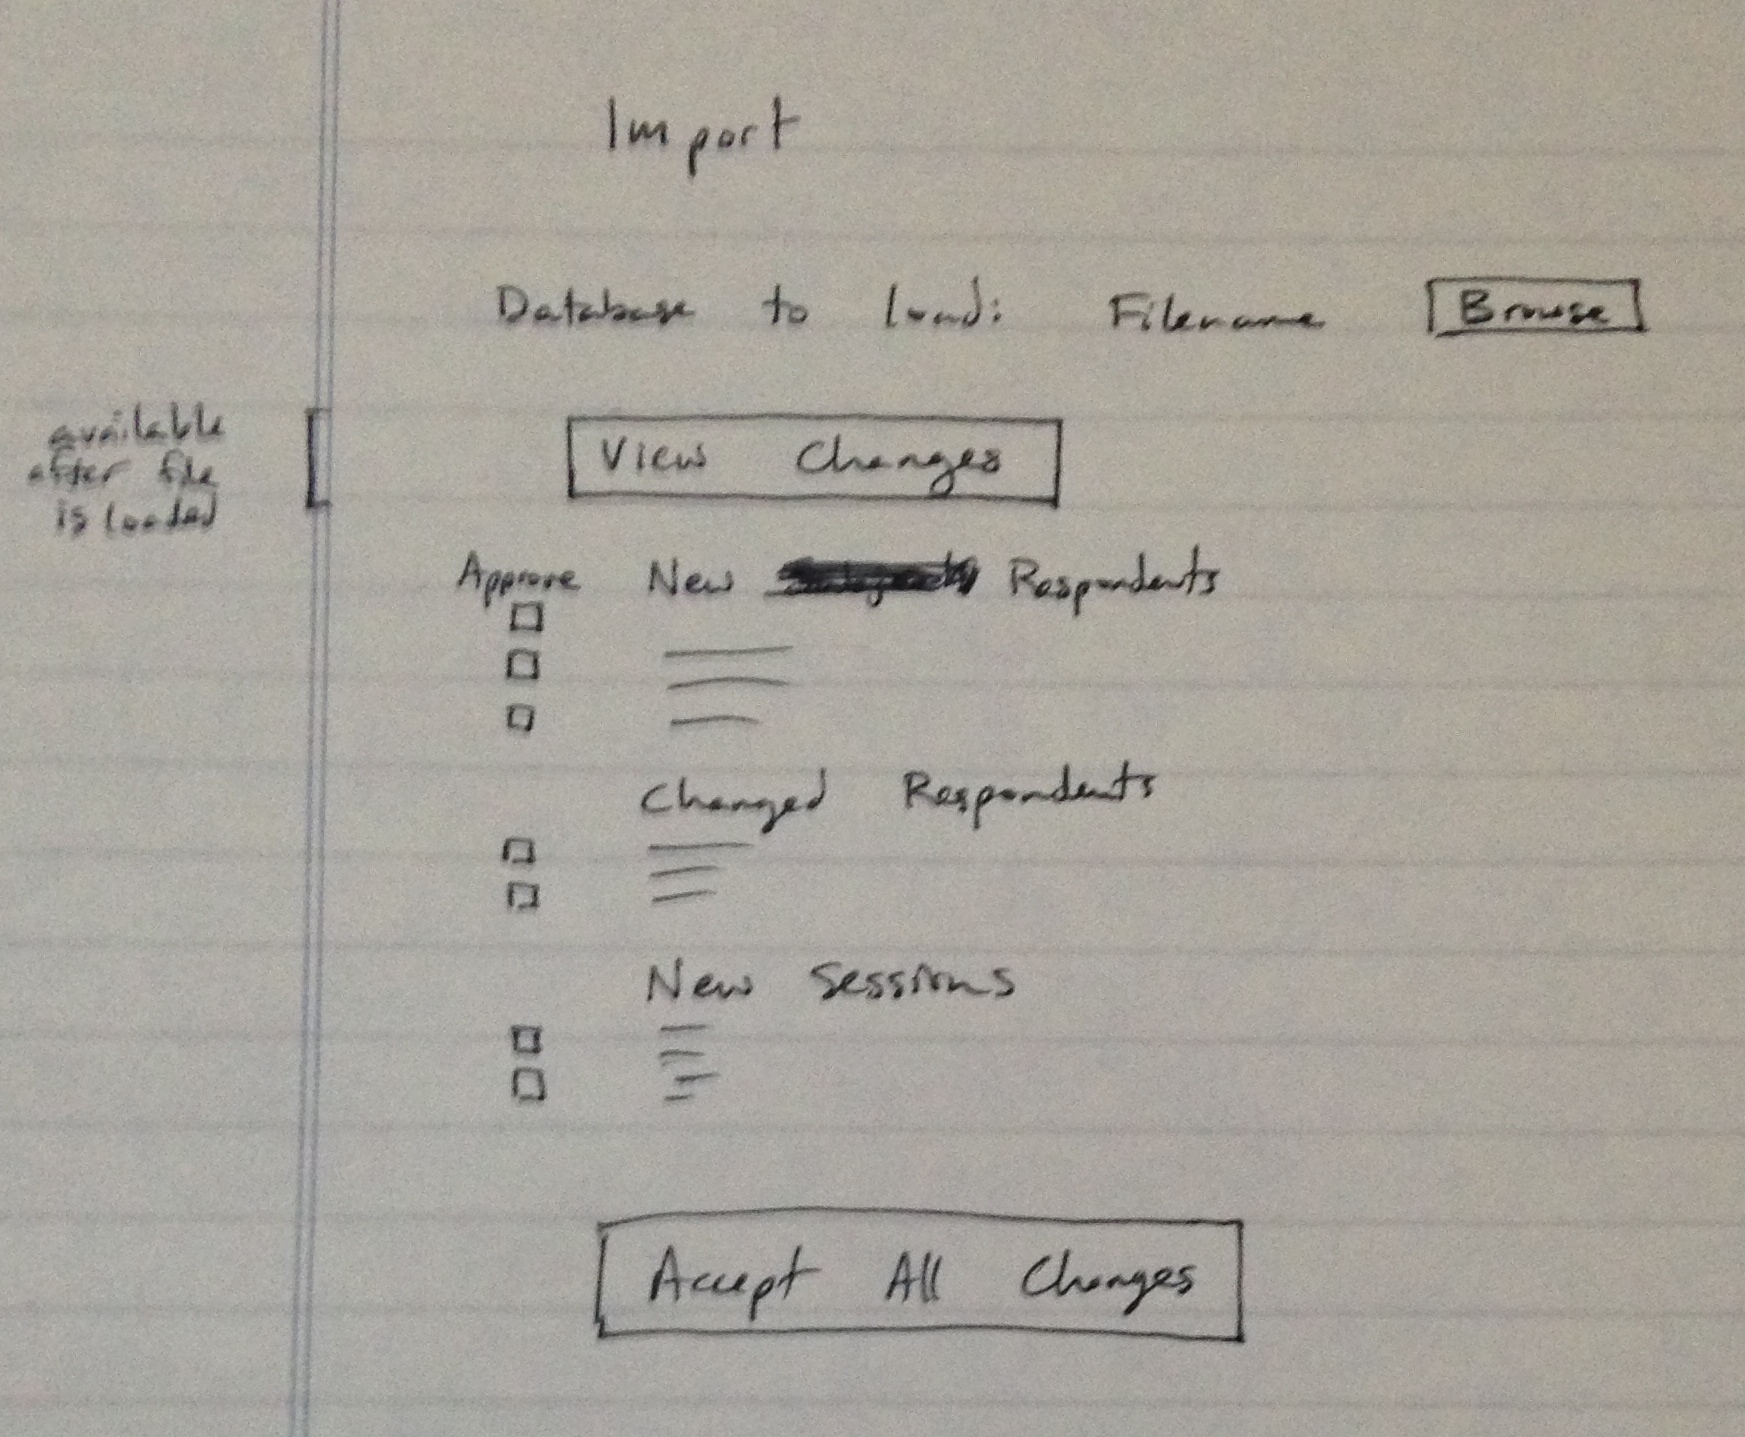 Import
Database to load: Filename Browse
available
after file
is loaded
View Changes
Approve New Respondents
Changed Respondents
New Sessions
Accept All Changes